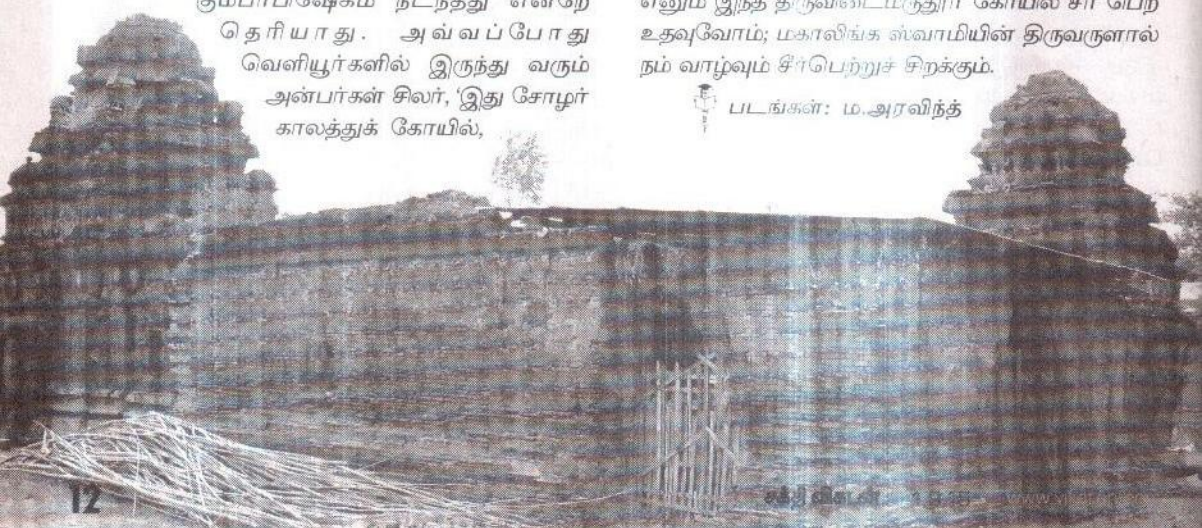 கும்பாபிஷேகம் நடந்தது என்றே
தெரியாது. அவ்வப்போது
வெளியூர்களில் இருந்து வரும்
அன்பர்கள் சிலர், 'இது சோழர்
காலத்துக் கோயில்,
எனும் இந்த திருவிடைமருதூர் கோயில் சீர் பெற
உதவுவோம்; மகாலிங்க ஸ்வாமியின் திருவருளால்
நம் வாழ்வும் சீர்பெற்றுச் சிறக்கும்.
படங்கள்: ம.அரவிந்த்
12
சக்தி விகடன்